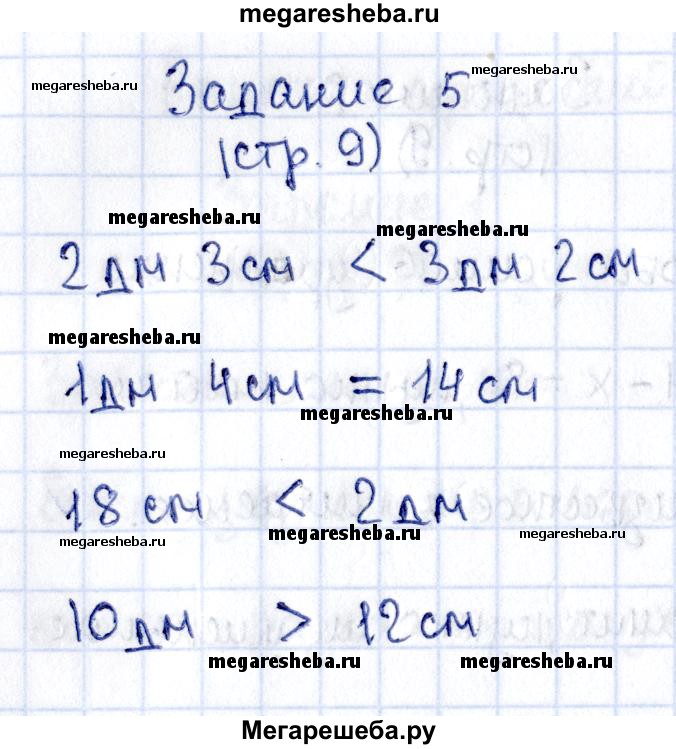 megaresheba.ru
megaresheba.ru Задание 5 megaresheba.ru
(стр. 9)
megaresheba.ru
megaresheba.ru
2 дм 3 см < 3 дм 2 см
megaresheba.ru
1 дм 4 см = 14 см
megaresheba.ru
megaresheba.ru
18 см < 2 дм
megaresheba.ru megaresheba.ru megaresheba.ru
10 дм > 12 см
megaresheba.ru megaresheba.ru
Мегарешеба.ру